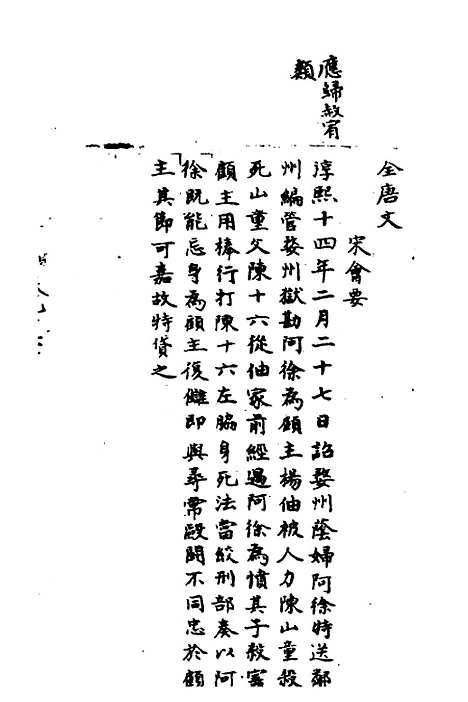 應歸赦宥
類
全唐文
宋會要
淳熙十四年二月二十七日詔婺州蔭婦阿徐特送鄰
州編管婺州獄勘阿徐為顧主楊伷被人力陳山童殺
死山童父陳十六從伷家前經過阿徐為憤其子殺害
顧主用棒行打陳十六左脇身死法當絞刑部奏以阿
徐既能忘身為顧主復讎即與尋常毆鬪不同忠於顧
主其節可嘉故特貸之